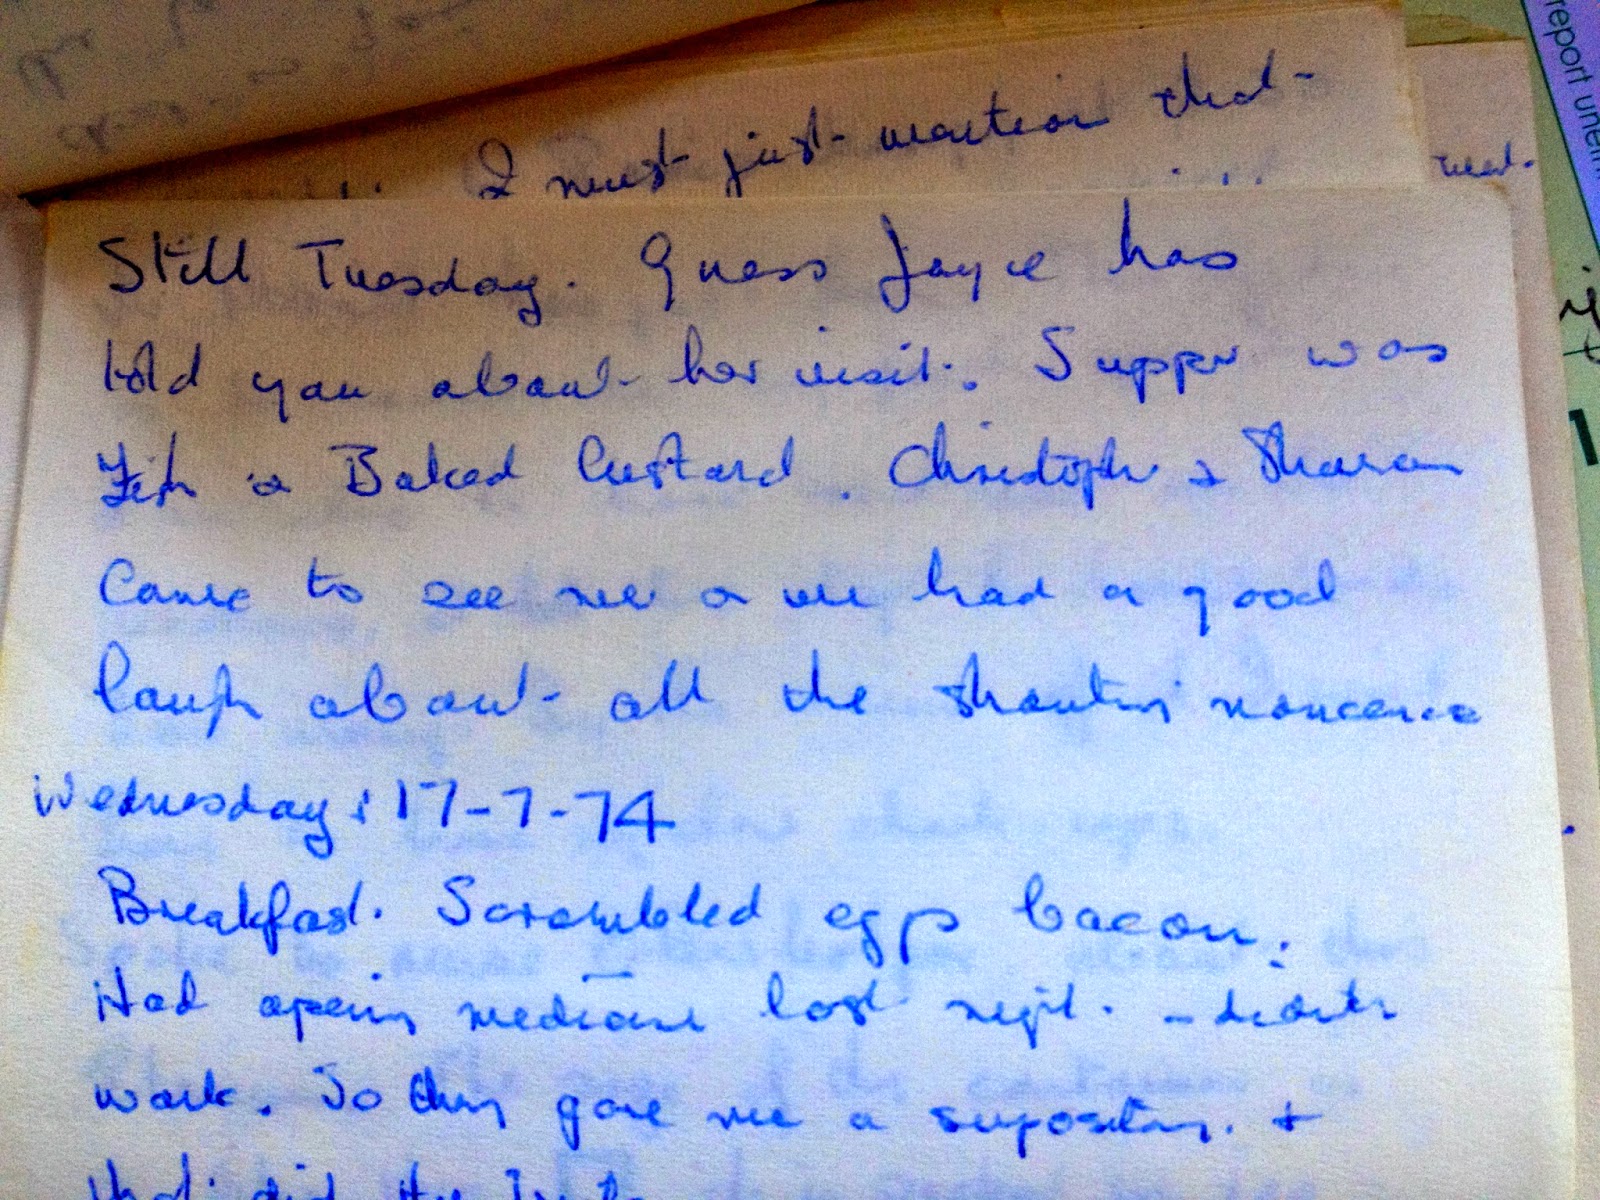 I must just mention that
Still Tuesday. Guess Joyce has
told you about her visit. Supper was
Fish & Baked Custard. Christopher & Sharon
Came to see me & we had a good
laugh about all the shouting noncence
Wednesday: 17-7-74
Breakfast. Scrambled eggs bacon.
Had opening medicine last night. - didn't
work. So they gave me a supository. +
that did the trick
report